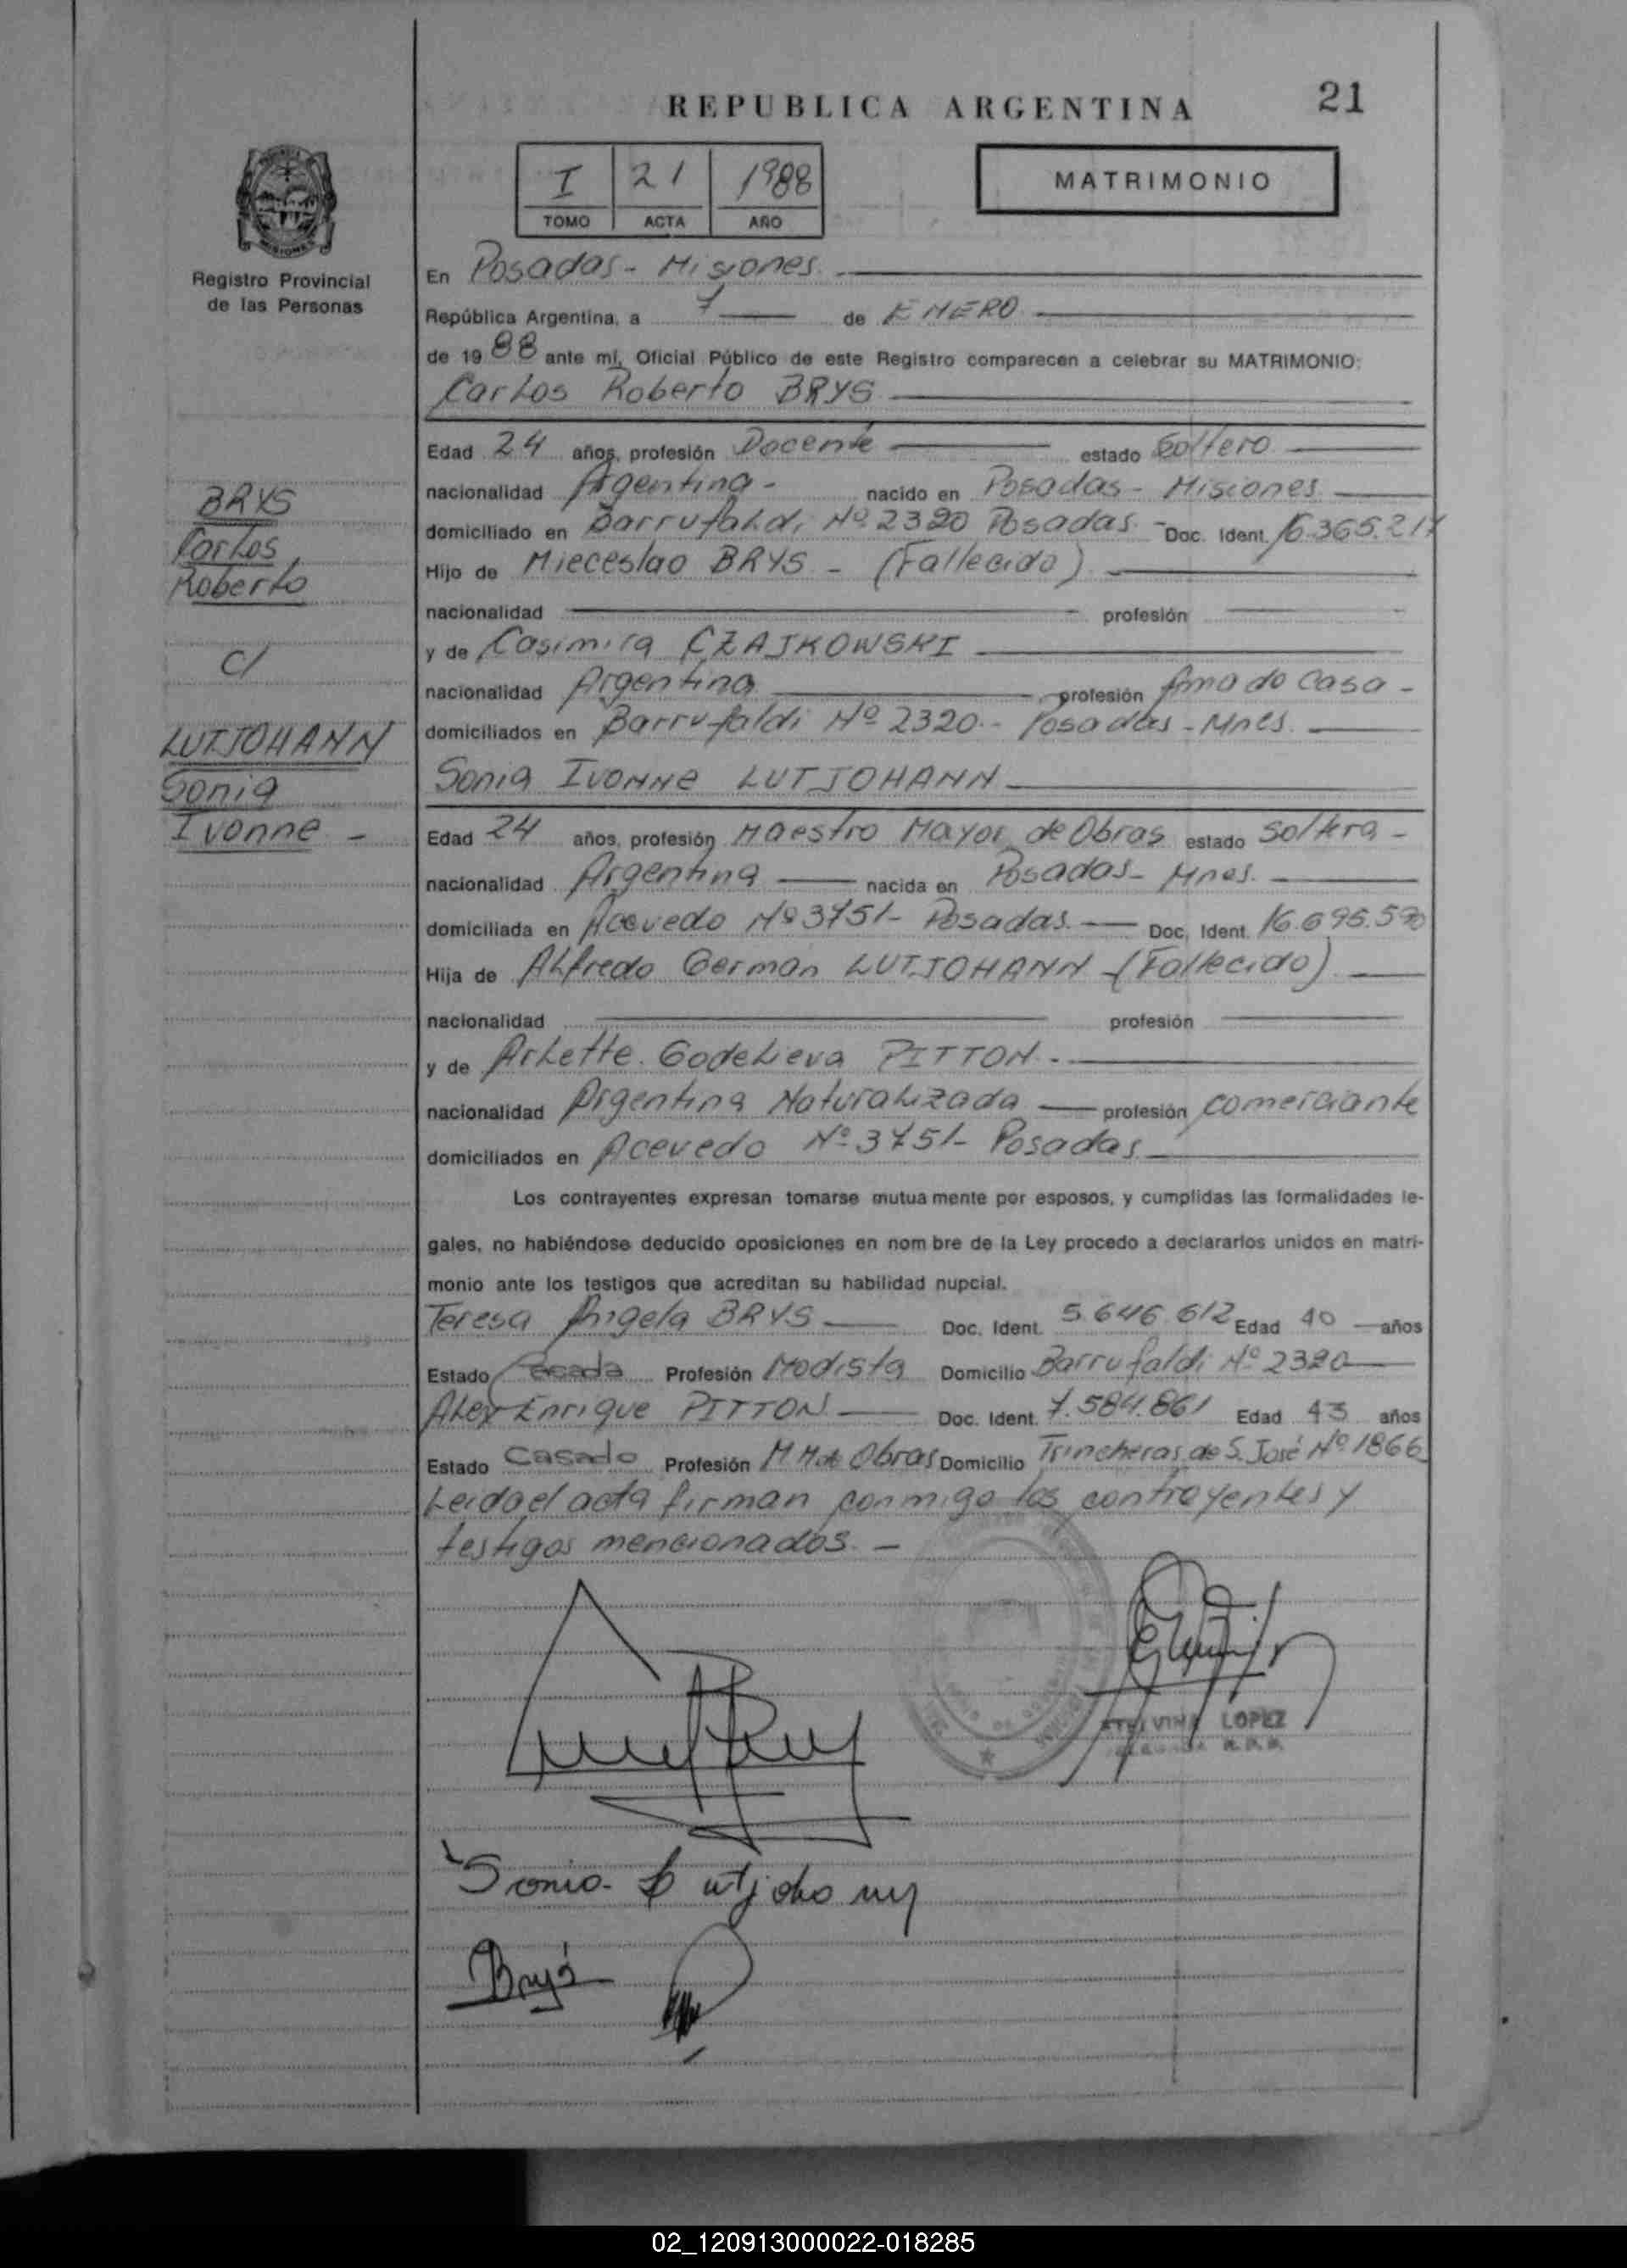 REPUBLICA ARGENTINA
21
I 21 1988
TOMO ACTA AÑO
MATRIMONIO
Registro Provincial
de las Personas
En Posadas - Misiones
República Argentina, a 7 de ENERO
de 1988 ante mí, Oficial Público de este Registro comparecen a celebrar su MATRIMONIO:
Carlos Roberto BRYS
Edad 24 años, profesión Docente estado Soltero
nacionalidad Argentina - nacido en Posadas - Misiones
domiciliado en Barrufaldi Nº 2320 Posadas - Doc. Ident. 16.365.217
Hijo de Mieceslao BRYS - (Fallecido)
nacionalidad profesión
y de Casimira CZAJKOWSKI
nacionalidad Argentina profesión Ama de Casa -
domiciliados en Barrufaldi Nº 2320 - Posadas - Mnes.
Sonia Ivonne LUTJOHANN
Edad 24 años, profesión Maestro Mayor de Obras estado soltera -
nacionalidad Argentina nacida en Posadas - Mnes.
domiciliada en Acevedo Nº 3751 - Posadas. Doc. Ident. 16.695.590
Hija de Alfredo German LUTJOHANN - (Fallecido)
nacionalidad profesión
y de Arlette Godelieva PITTON -
nacionalidad Argentina Naturalizada profesión comerciante
domiciliados en Acevedo Nº 3751 - Posadas
Los contrayentes expresan tomarse mutua mente por esposos, y cumplidas las formalidades le-
gales, no habiéndose deducido oposiciones en nom bre de la Ley procedo a declararlos unidos en matri-
monio ante los testigos que acreditan su habilidad nupcial.
Teresa Angela BRYS Doc. Ident. 5.646.612 Edad 40 años
Estado Casada Profesión Modista Domicilio Barrufaldi Nº 2320
Alex Enrique PITTON Doc. Ident. 7.584.861 Edad 43 años
Estado Casado Profesión M.M. de Obras Domicilio Trincheras de S. José Nº 1866
Leida el acta firman conmigo los contrayentes y
testigos mencionados. -
BRYS
Carlos
Roberto
C/
LUTJOHANN
Sonia
Ivonne -
LOPEZ
Sonia Lutjohann
Brys
02_120913000022-018285